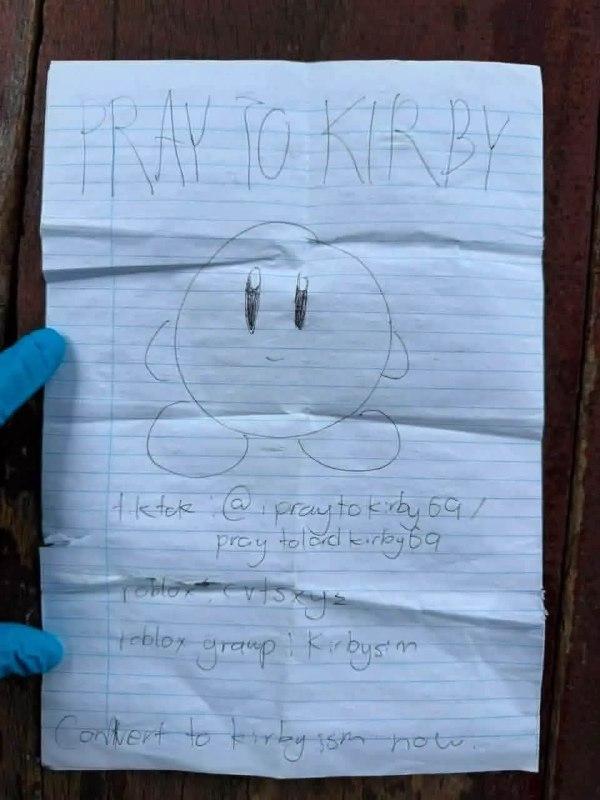 PRAY TO KIRBY
tiktok : @ipraytokirby69 /
praytolordkirby69
roblox : cvtsxyz
roblox group : Kirbysim
Convert to kirbyism now.